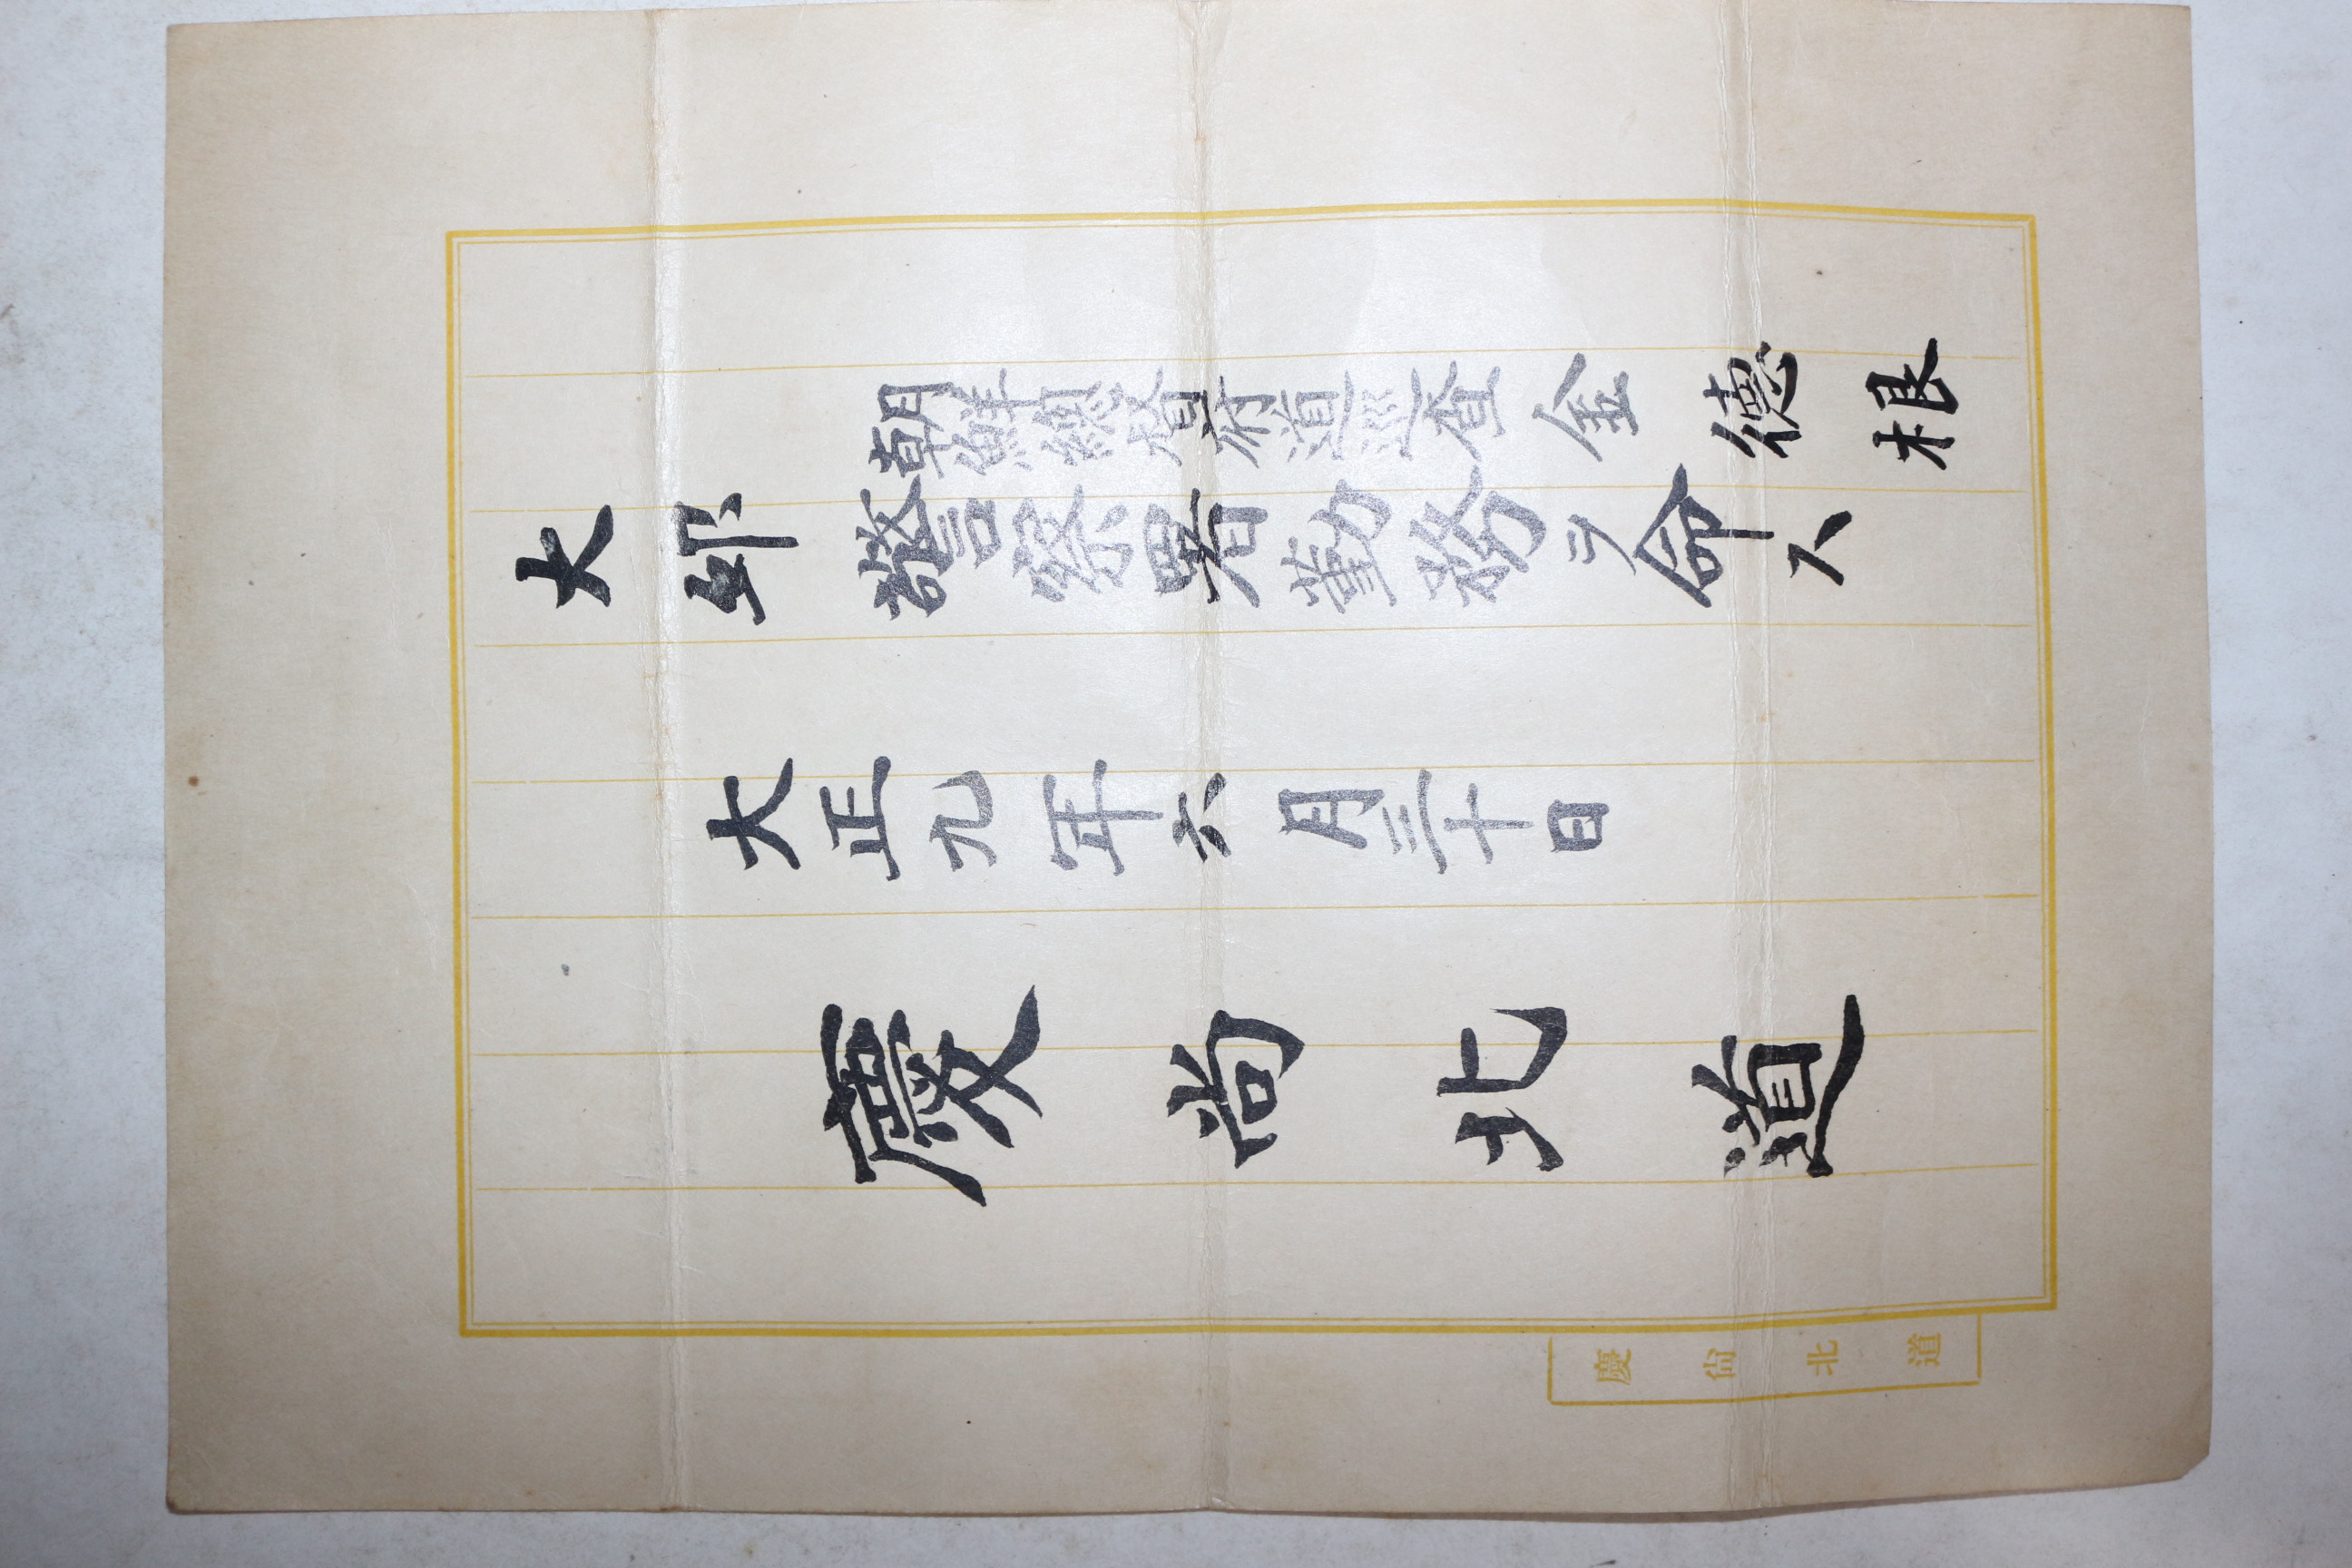 朝鮮總督府道巡査 金德根
大邱警察署勤務ヲ命ス
大正九年六月三十日
慶尚北道
慶尚北道